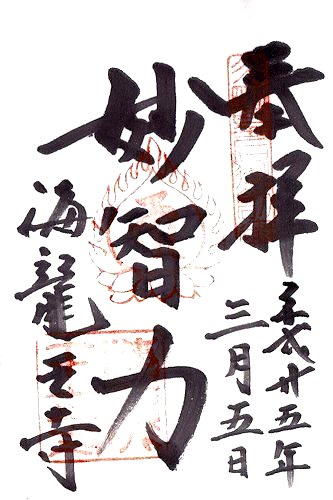 奉拝
平成廿五年
三月五日
妙智力
海龍王寺